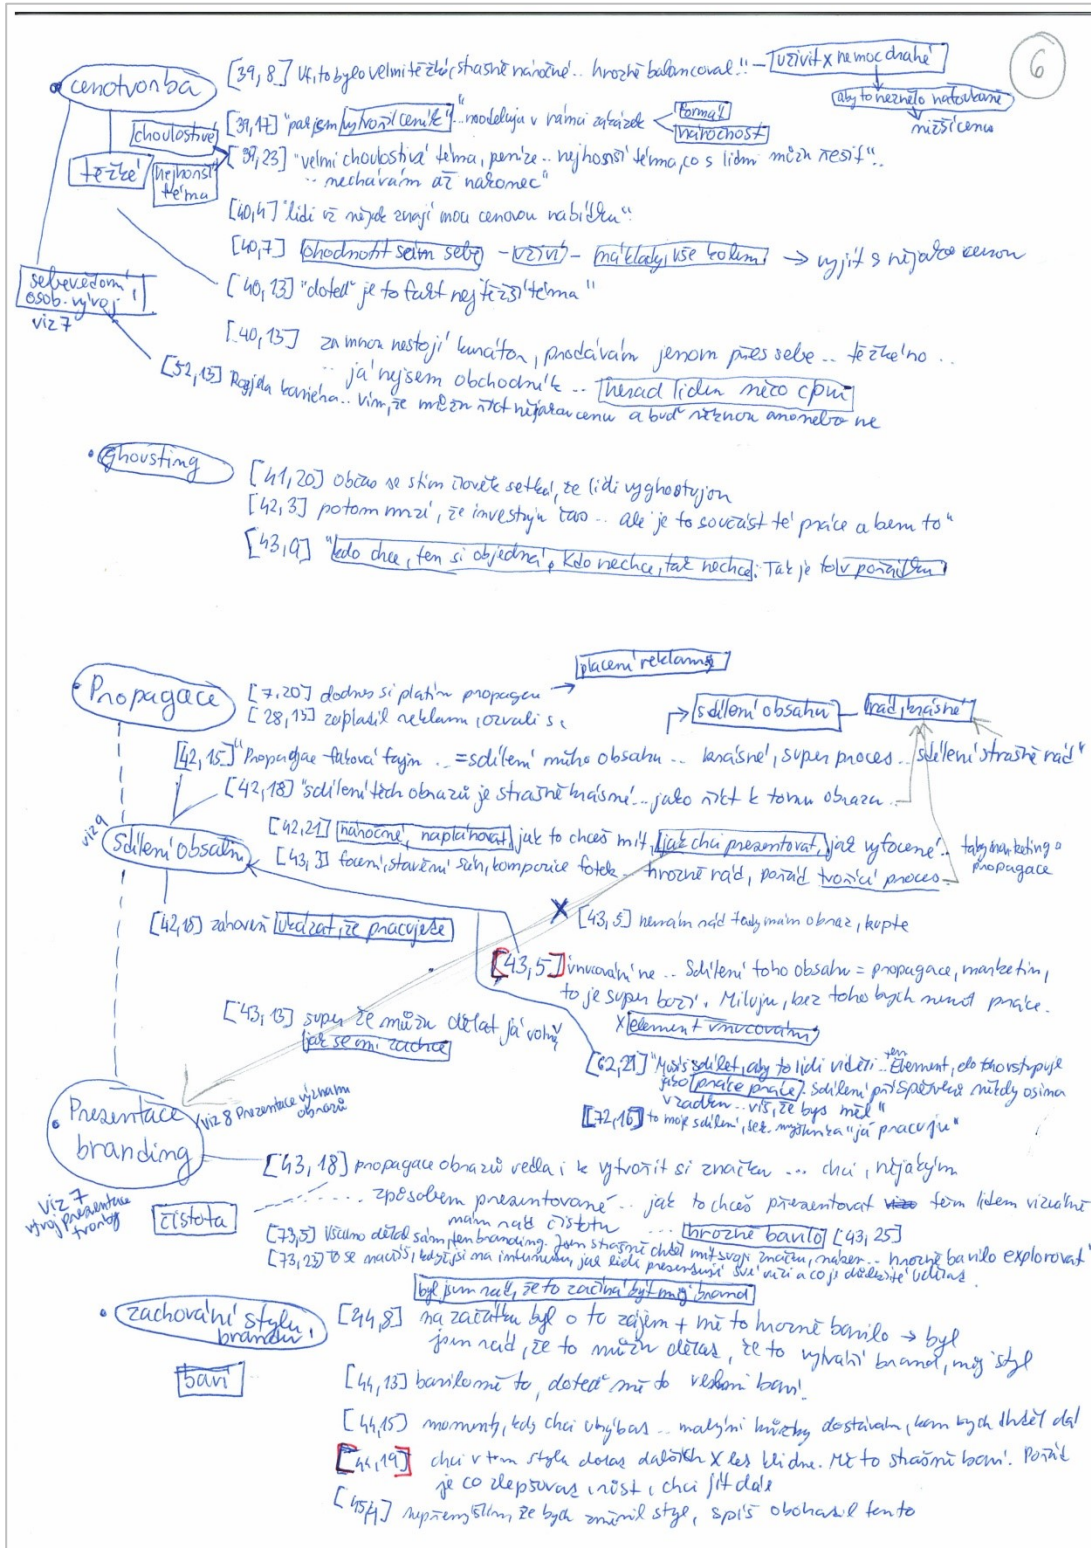 6
• cenotvorba
[39,8] Uf, to bylo velmi těžké, strašně náročné .. hrozně balancoval!! – uživit x nemoc drahé
aby to neznělo
nižší cenu
choulostivé
[39,17] "pak jsem vytvořil ceník" .. modeluju v rámci zakázek
formát
náročnost
těžké
nejhorší téma
[39,23] "velmi choulostivé téma, peníze .. nejhorší téma, co s lidmi můžu řešit"..
.. nechávám až nakonec"
[40,4] "lidi už nějak znají mou cenovou nabídku"
[40,7] ohodnotit sám sebe – uživí – náklady, vše kolem → vyjít s nějakou cenou
sebevědomí, osob. vývoj
viz 7
[40,13] "doteď je to fakt nejtěžší téma"
[40,13] za mnou nestojí kurátor, prodávám jenom přes sebe .. těžké no ..
.. já nejsem obchodník .. nerad lidem něco cpu
[52,13] bariéra .. vím, že můžu říct nějakou cenu a buď řeknou ano nebo ne
• ghousting
[41,20] občas se s tím člověk setká, že lidi vyghostujou
[42,3] potom mrzí, že investuju čas .. ale je to součást té práce a beru to"
[43,9] "kdo chce, ten si objedná, kdo nechce, tak nechce. Tak je to v pořádku
placení reklamy
• Propagace
[7,20] dodnes si platím propagaci →
[28,13] zaplatil reklamu, ozvali se
sdílení obsahu – rád, krásné
[42,15] "Propagace taková fajn .. = sdílení mího obsahu .. krásné, super proces .. sdílení strašně rád"
[42,18] "sdílení těch obrazů je strašně krásné .. jako říct k tomu obrazu ..
viz 9
Sdílení obsahu
[42,21] náročné, naplánovat jak to chceš mít, jak chci prezentovat, jak vyfocené .. taky marketing a propagace
[43,3] focení, stavění scén, kompozice fotek .. hrozně rád, pořád tvořící proces
[42,18] zároveň ukázat, že pracuješ
x [43,5] nemám rád tady mám obraz, kupte
[43,5] vnucování ne .. Sdílení toho obsahu = propagace, marketing,
to je super boží. Miluju, bez toho bych neměl práce.
x element vnucování
[43,13] super že můžu dělat já volně
jak se mi zachce
[62,21] "Musíš sdílet, aby to lidi viděli .. ten Element, do toho vstupuje
jako práce práce. Sdílení příspěvků někdy osina
v zadku .. víš, že bys měl"
[72,16] to moje sdílení, myšlenka "já pracuju"
• Prezentace branding
viz 8 Prezentace význam obrazů
viz 7
vývoj prezentace tvorby
[43,18] propagace obrazů vedla i k vytvořit si značku .... chci, nějakým
způsobem prezentované .. jak to chceš prezentovat těm lidem vizuálně
čistota
mám rád čistotu .... hrozně bavilo [43,25]
[73,5] Všechno dělal sám, ten branding. Jsem strašně chtěl mít svoji značku, .. hrozně bavilo explorovat"
[73,25] to se naučíš, když jsi na internetu, jak lidi prezentují své věci a co je důležité udělat
byl jsem rád, že to začíná být můj brand
• zachování stylu brandu
[44,8] na začátku byl o to zájem + mě to hrozně bavilo → byl
jsem rád, že to můžu dělat, že to vytváří brand, můj styl
baví
[44,13] bavilo mě to, doteď mě to velmi baví
[44,15] momenty, kdy chci uhýbat .. malými krůčky dostávám, kam bych chtěl dál
[44,19] chci v tom stylu dělat dalších X let klidně. Mě to strašně baví. Pořád
je co zlepšovat, růst, chci jít dále
[45,4] nepřemýšlím, že bych změnil styl, spíš obohatil tento